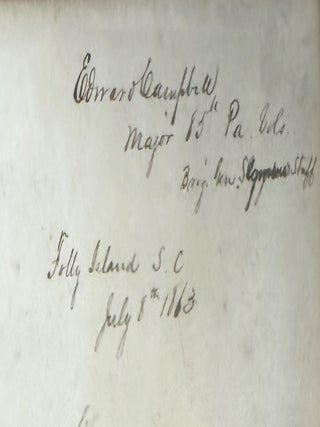 Edward Campbell
Major 85th Pa. Vols.
Brig. Gen. Staff
Folly Island S. C
July 8th 1863